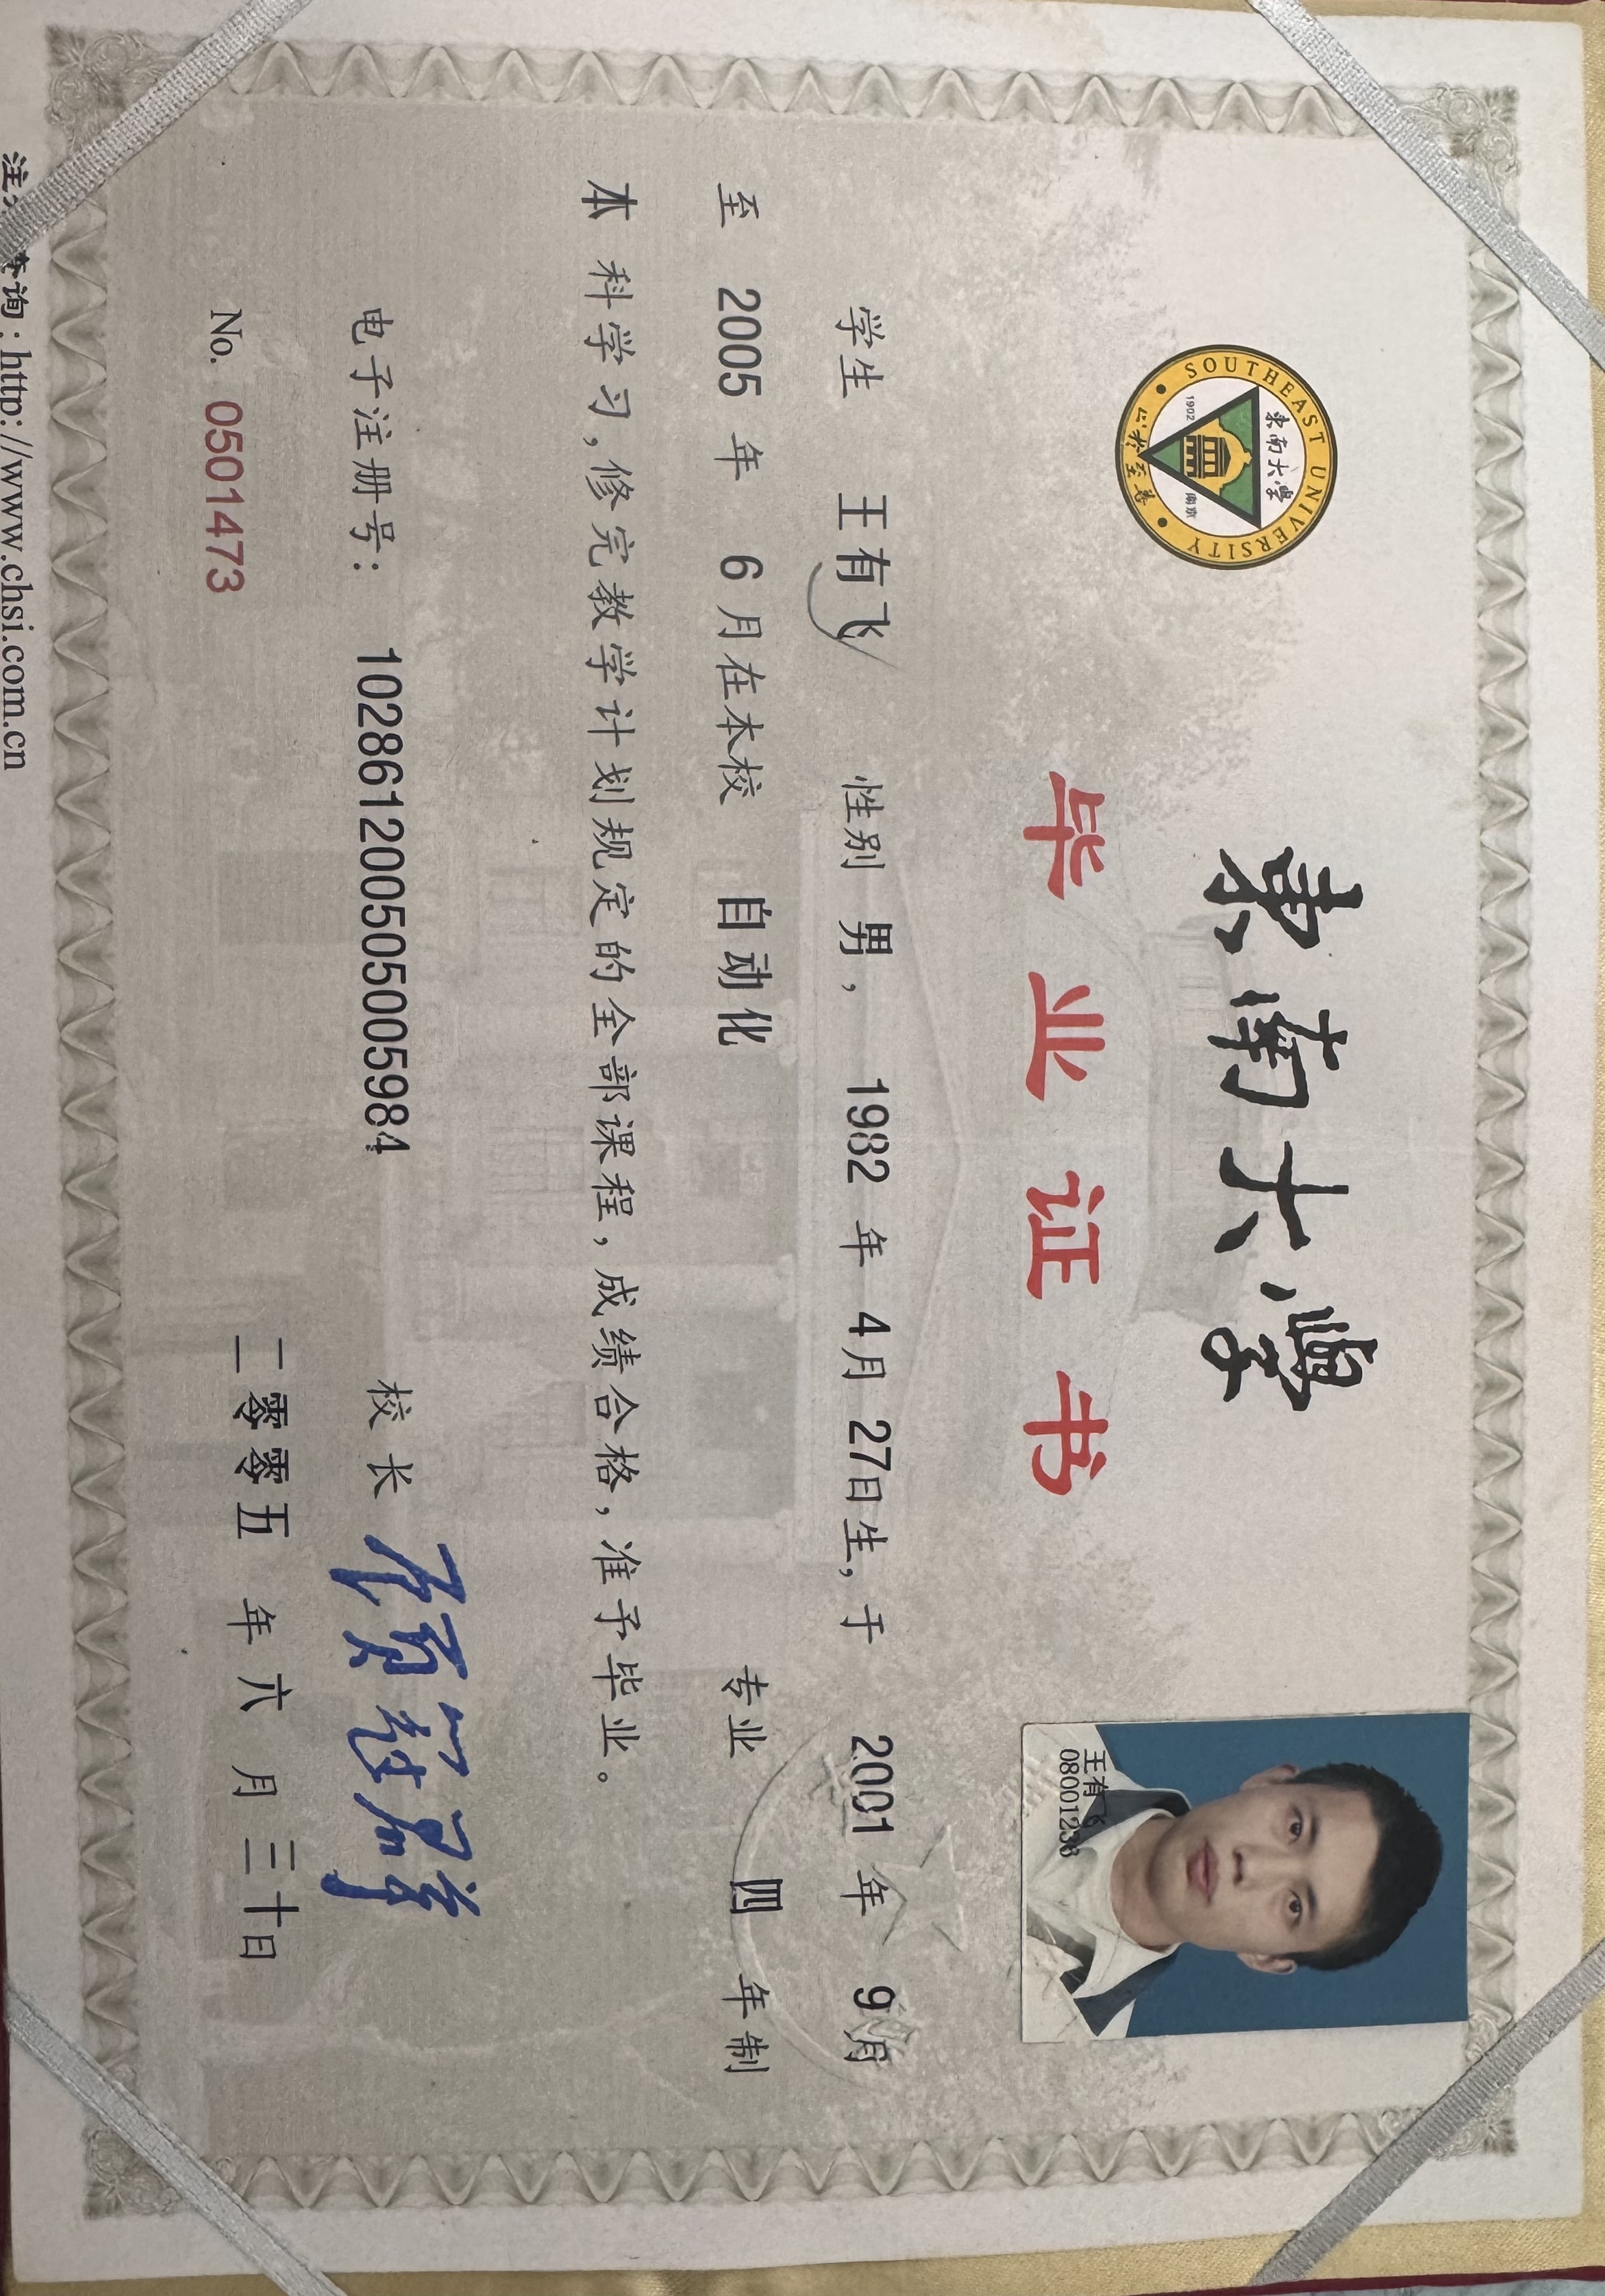 東南大學
SOUTHEAST UNIVERSITY
東南大學
1902 南京
止於至善
毕业证书
王有飞
08001238
学生 王有飞 性别 男， 1982 年 4月 27日生，于 2001 年 9月
至 2005 年 6 月在本校 自动化 专业 四 年制
本 科学习，修完教学计划规定的全部课程，成绩合格，准予毕业。
电子注册号： 102861200505005984
校 长
No. 0501473
二零零五 年 六 月 三十日
询：http://www.chsi.com.cn